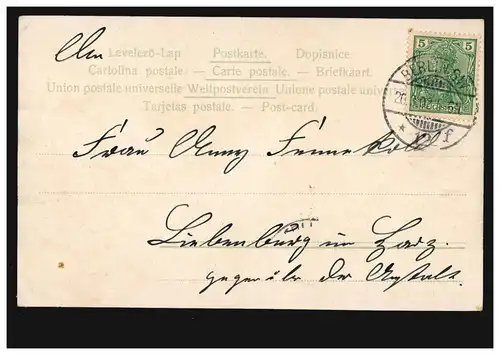 An
Levelező-Lap Postkarte. Dopisnice.
Cartolina postale. — Carte postale. — Briefkaart.
Union postale universelle Weltpostverein Unione postale univer
Tarjetas postale. — Post-card.
5 5
BERLIN S.
* 12 f
Frau Anny
Liebenburg im Harz.
gegenüber der Anstalt.